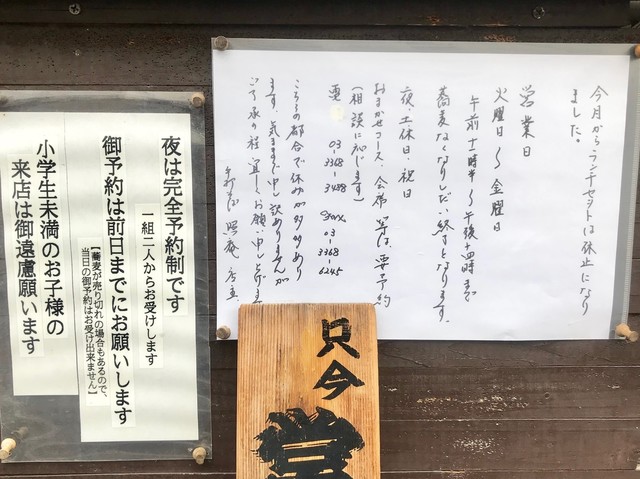 今月からランチセットは休止になり
ました。
営業日
火曜日〜金曜日
午前十一時半〜午後十四時まで
蕎麦なくなりしだい終了となります。
夜、土休日、祝日
おまかせコース、会席等は、要予約
(相談に応じます)
電 03-3368-3488 Fax 03-3368-6245
こちらの都合で休みが多々あり
ますす、気ままで申し訳ありませんが
ご了承の程、宜しくお願い申し上げます
店主
夜は完全予約制です
一組二人からお受けします
御予約は前日までにお願いします
【蕎麦が売り切れの場合もあるので、
当日の御予約はお受け出来ません】
小学生未満のお子様の
来店は御遠慮願います
只今
営